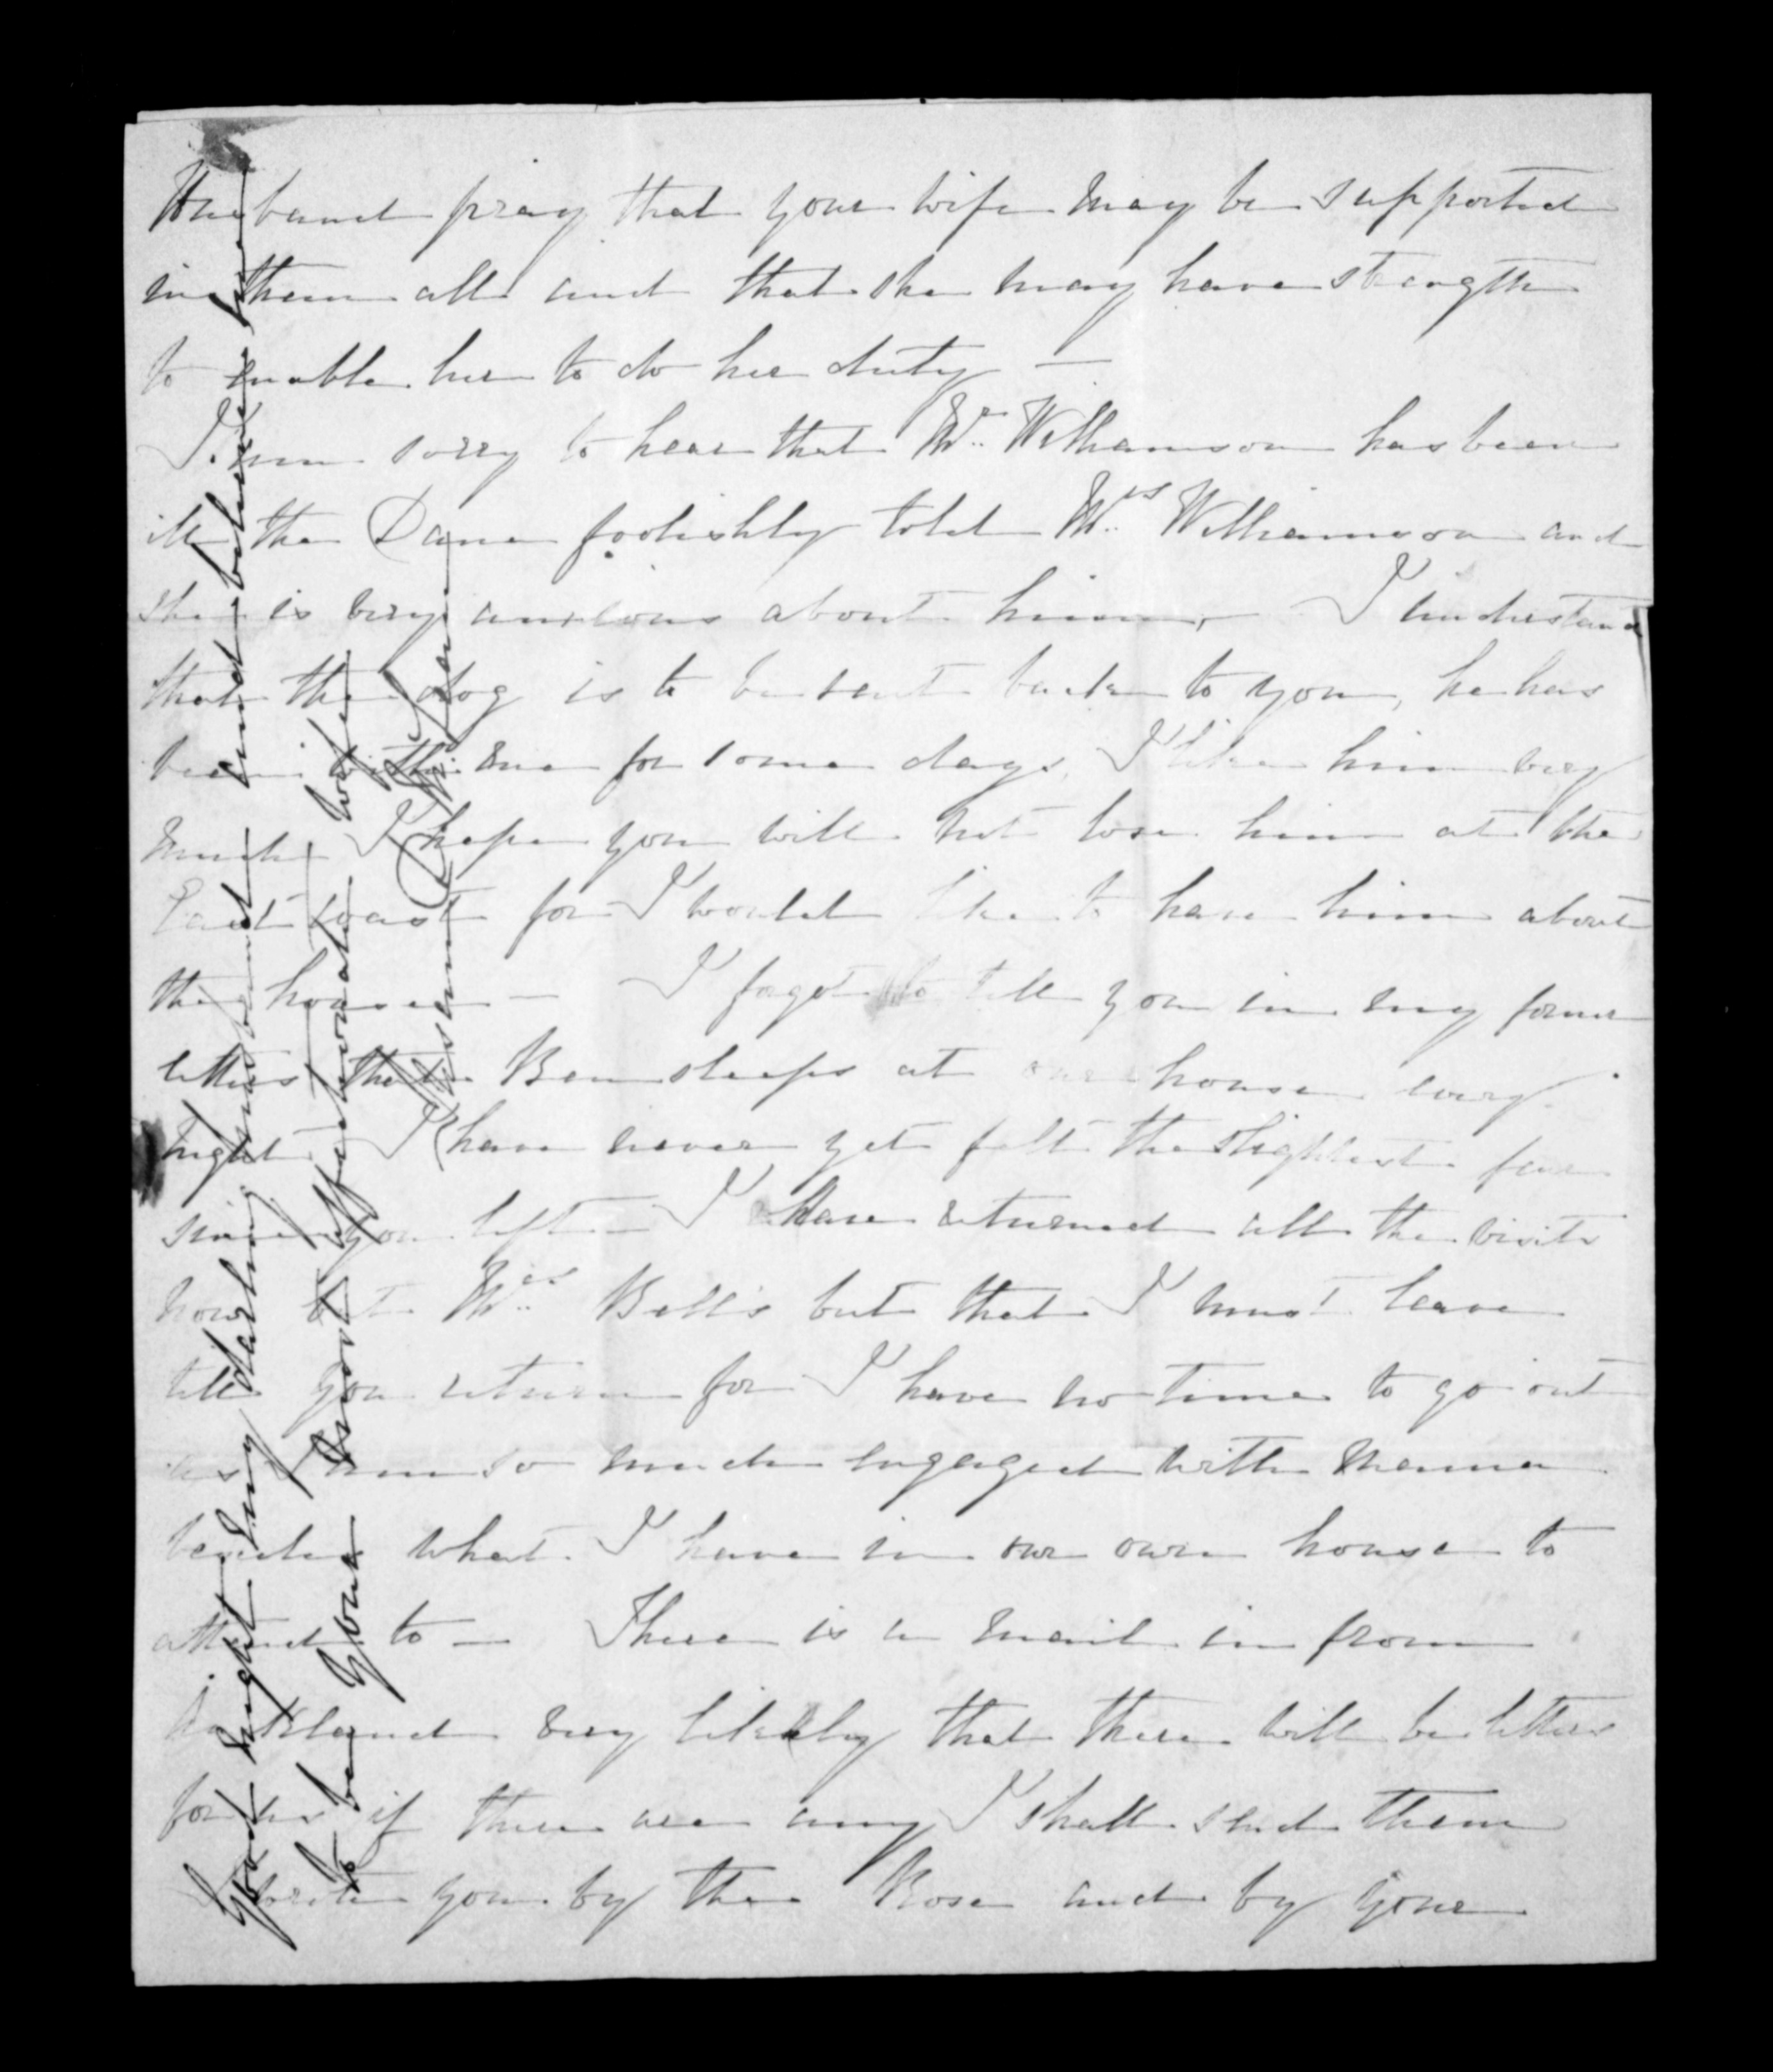 Husband pray that your wife may be supported
in them all and that she may have strength
to enable her to do her duty —
I am sorry to hear that Mr. Williamson has been
ill the Dane foolishly told Mrs. Williamson and
she is very anxious about him, I understand
that the dog is to be sent back to you, he has
been with me for some days, I like him very
much I hope you will not lose him at the
East Coast for I would like to have him about
the house — I forgot to tell you in my former
letters that Ben sleeps at our house every
night I have never yet felt the slightest fear
since you left — I have returned all the visits
now but Mrs. Bell's but that I must leave
till you return for I have no time to go out
as I am so much engaged with Mama
besides what I have in our own house to
attend to — There is a mail in from
Auckland very likely that there will be letters
for us if there are any I shall send them
I wrote you by the Rose and by your
Good night my darling husband and believe me
to be your most affectionate wife
Susanna